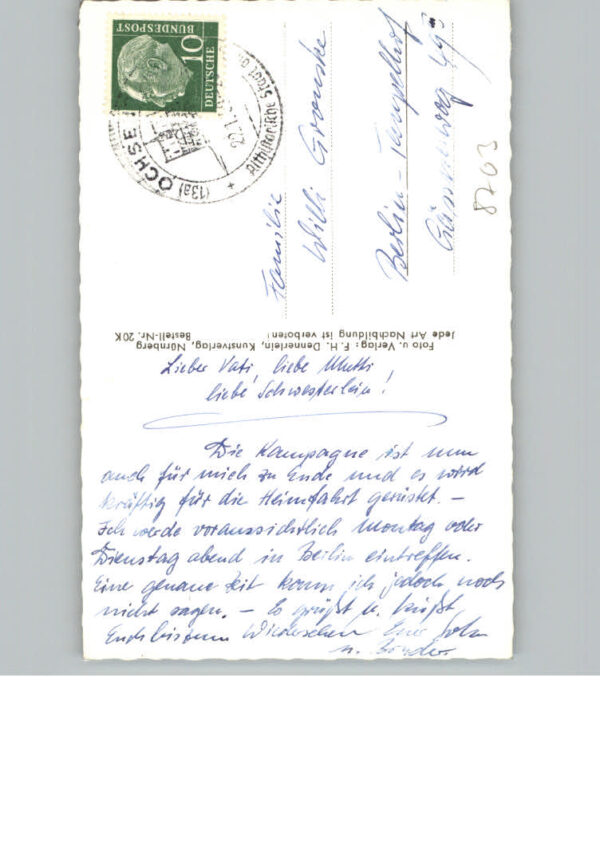 Lieber Vati, liebe Mutti
liebe Schwesterlein!
Die Kampagne ist nun
auch für mich zu Ende und es wird
kräftig für die Heimfahrt gerüstet. –
Ich werde voraussichtlich Montag oder
Dienstag abend in Berlin eintreffen.
Eine genaue Zeit kann ich jedoch noch
nicht sagen. – Es grüßt u. küßt
Euch bis zum Wiedersehen Euer Sohn
u. Bruder
Foto u. Verlag: F. H. Dennerlein, Kunstverlag, Nürnberg
Jede Art Nachbildung ist verboten! Bestell-Nr. 20K
Familie
Willi
Berlin-Tempelhof
8703
DEUTSCHE
BUNDESPOST
10
(13a) OCHSE
Althistorische Stadt